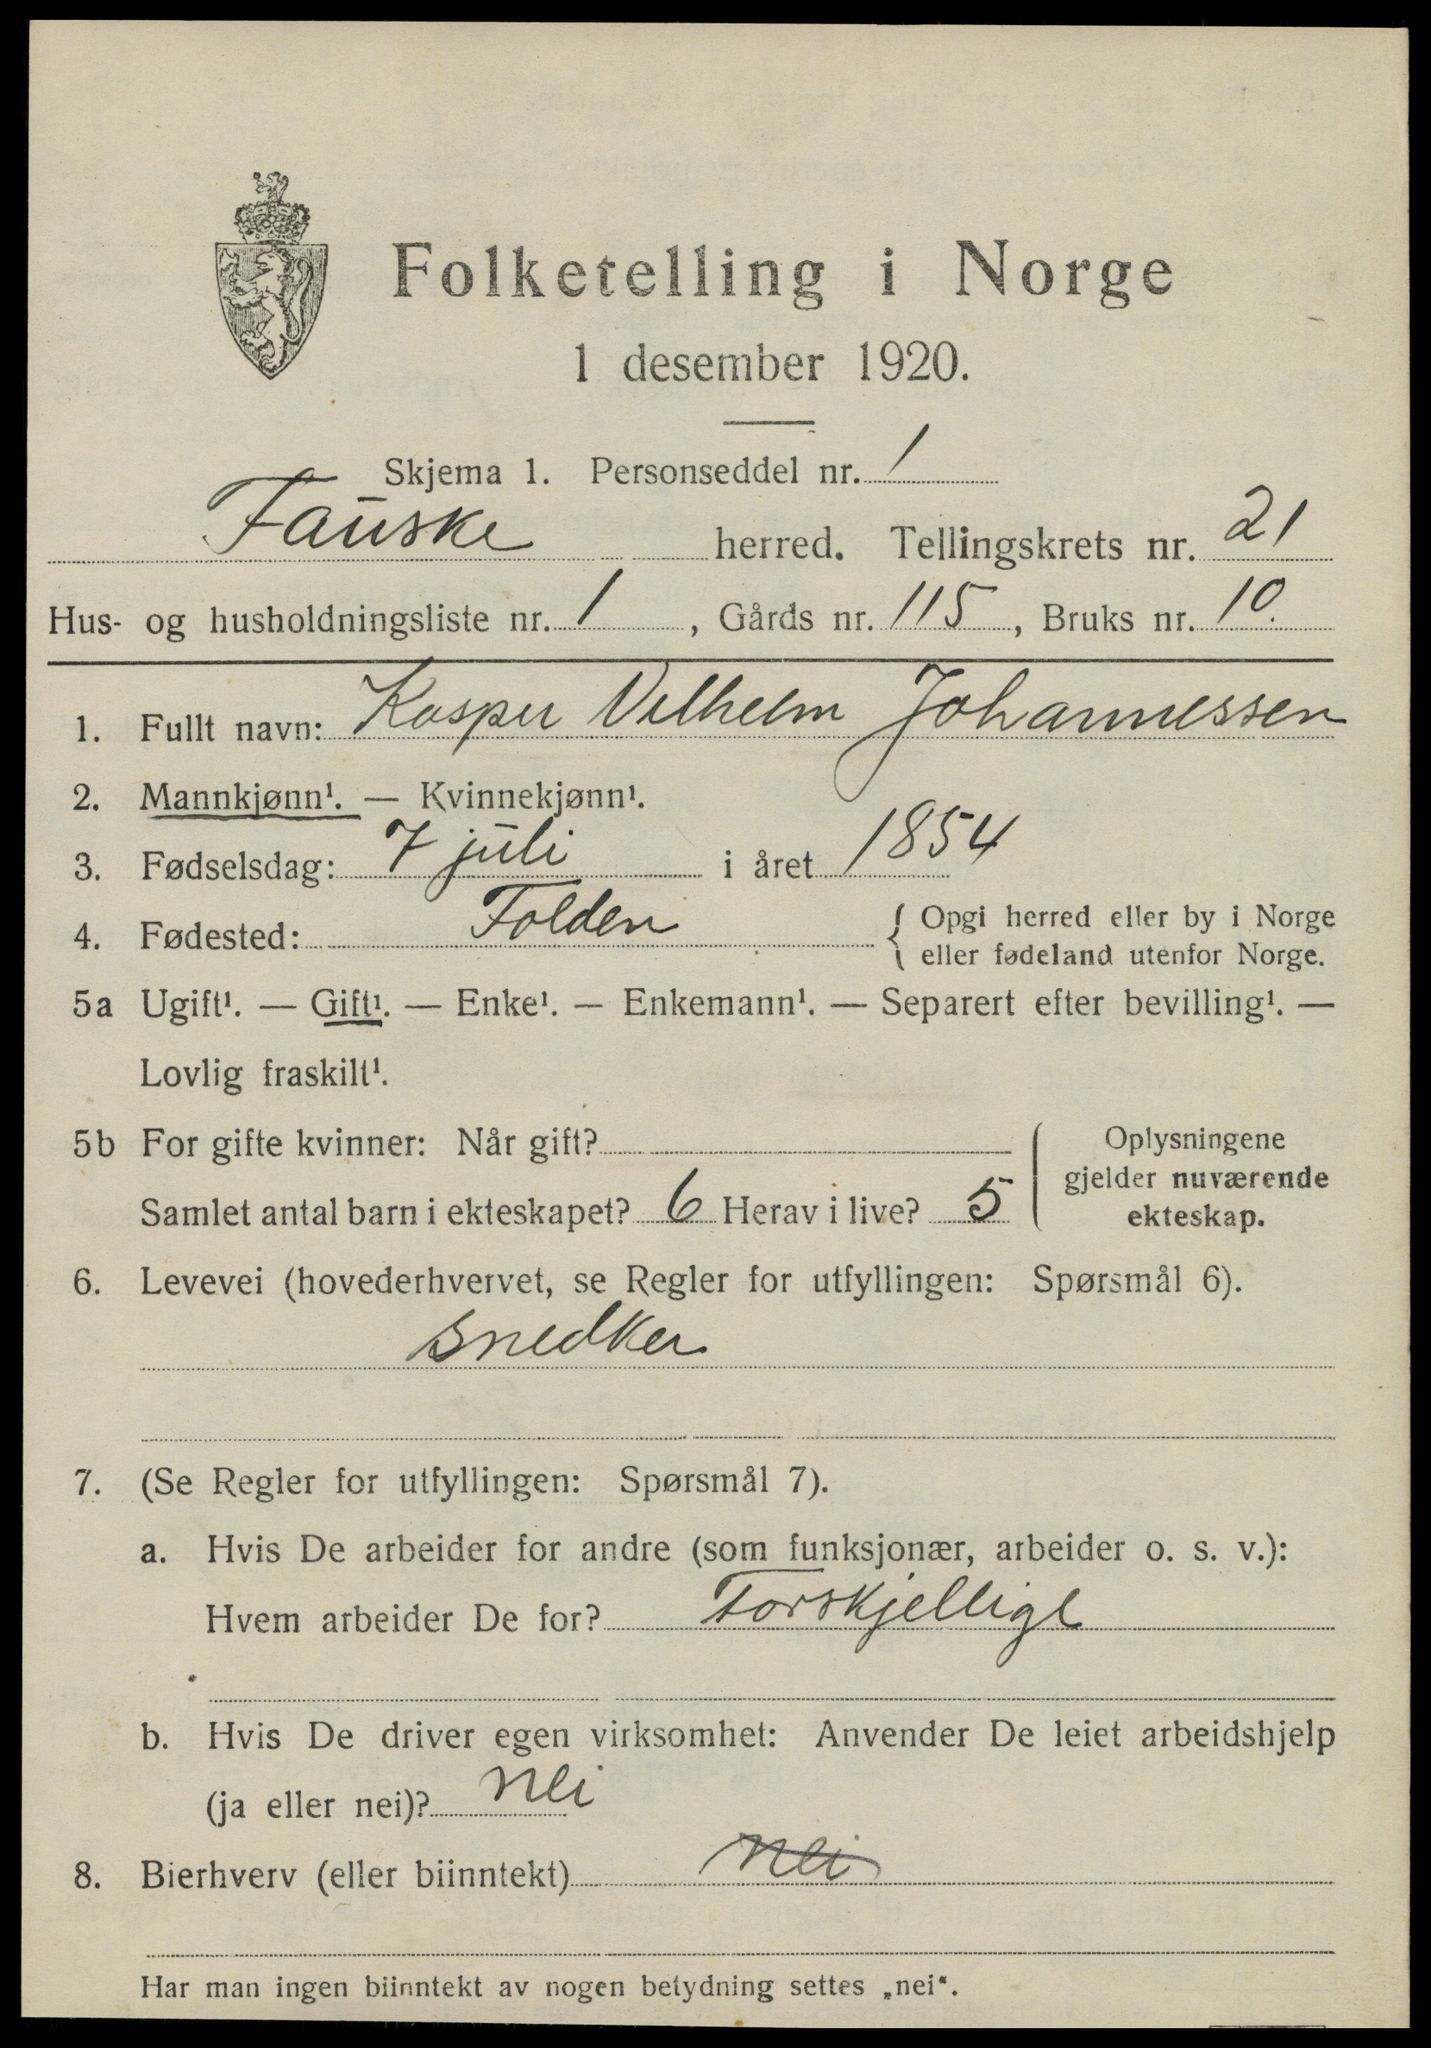 Folketelling i Norge
1 desember 1920.
Skjema 1. Personseddel nr. 1
Fauske herred. Tellingskrets nr. 21
Hus- og husholdningsliste nr. 1, Gårds nr. 115, Bruks nr. 10.
1. Fullt navn: Kasper Vilhelm Johannessen
2. Mannkjønn¹. — Kvinnekjønn¹.
3. Fødselsdag: 7 juli i året 1854
4. Fødested: Folden { Opgi herred eller by i Norge
eller fødeland utenfor Norge.
5a Ugift¹. — Gift¹. — Enke¹. — Enkemann¹. — Separert efter bevilling¹. —
Lovlig fraskilt¹.
5b For gifte kvinner: Når gift?
Samlet antal barn i ekteskapet? 6 Herav i live? 5
Oplysningene
gjelder nuværende
ekteskap.
6. Levevei (hovederhvervet, se Regler for utfyllingen: Spørsmål 6).
Snedker
7. (Se Regler for utfyllingen: Spørsmål 7).
a. Hvis De arbeider for andre (som funksjonær, arbeider o. s. v.):
Hvem arbeider De for? Forskjellige
b. Hvis De driver egen virksomhet: Anvender De leiet arbeidshjelp
(ja eller nei)? nei
8. Bierhverv (eller biinntekt) nei
Har man ingen biinntekt av nogen betydning settes „nei“.